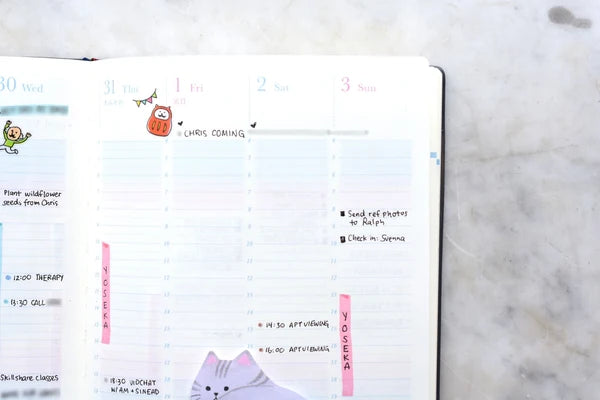 30 Wed
Plant wildflower
seeds from Chris
12:00 THERAPY
13:30 CALL
Skillshare classes
31 Thu
YOSEKA
18:30 VIDCHAT
W/AM + SINEAD
1 Fri
CHRIS COMING
2 Sat
14:30 APT VIEWING
16:00 APT VIEWING
3 Sun
Send ref photos
to Ralph
Check in: Svenna
YOSEKA